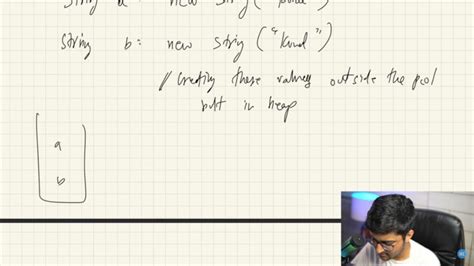 String a = new String("Kunal")
String b = new String ("Kunal")
// Creating these values outside the pool
but in heap
a
b